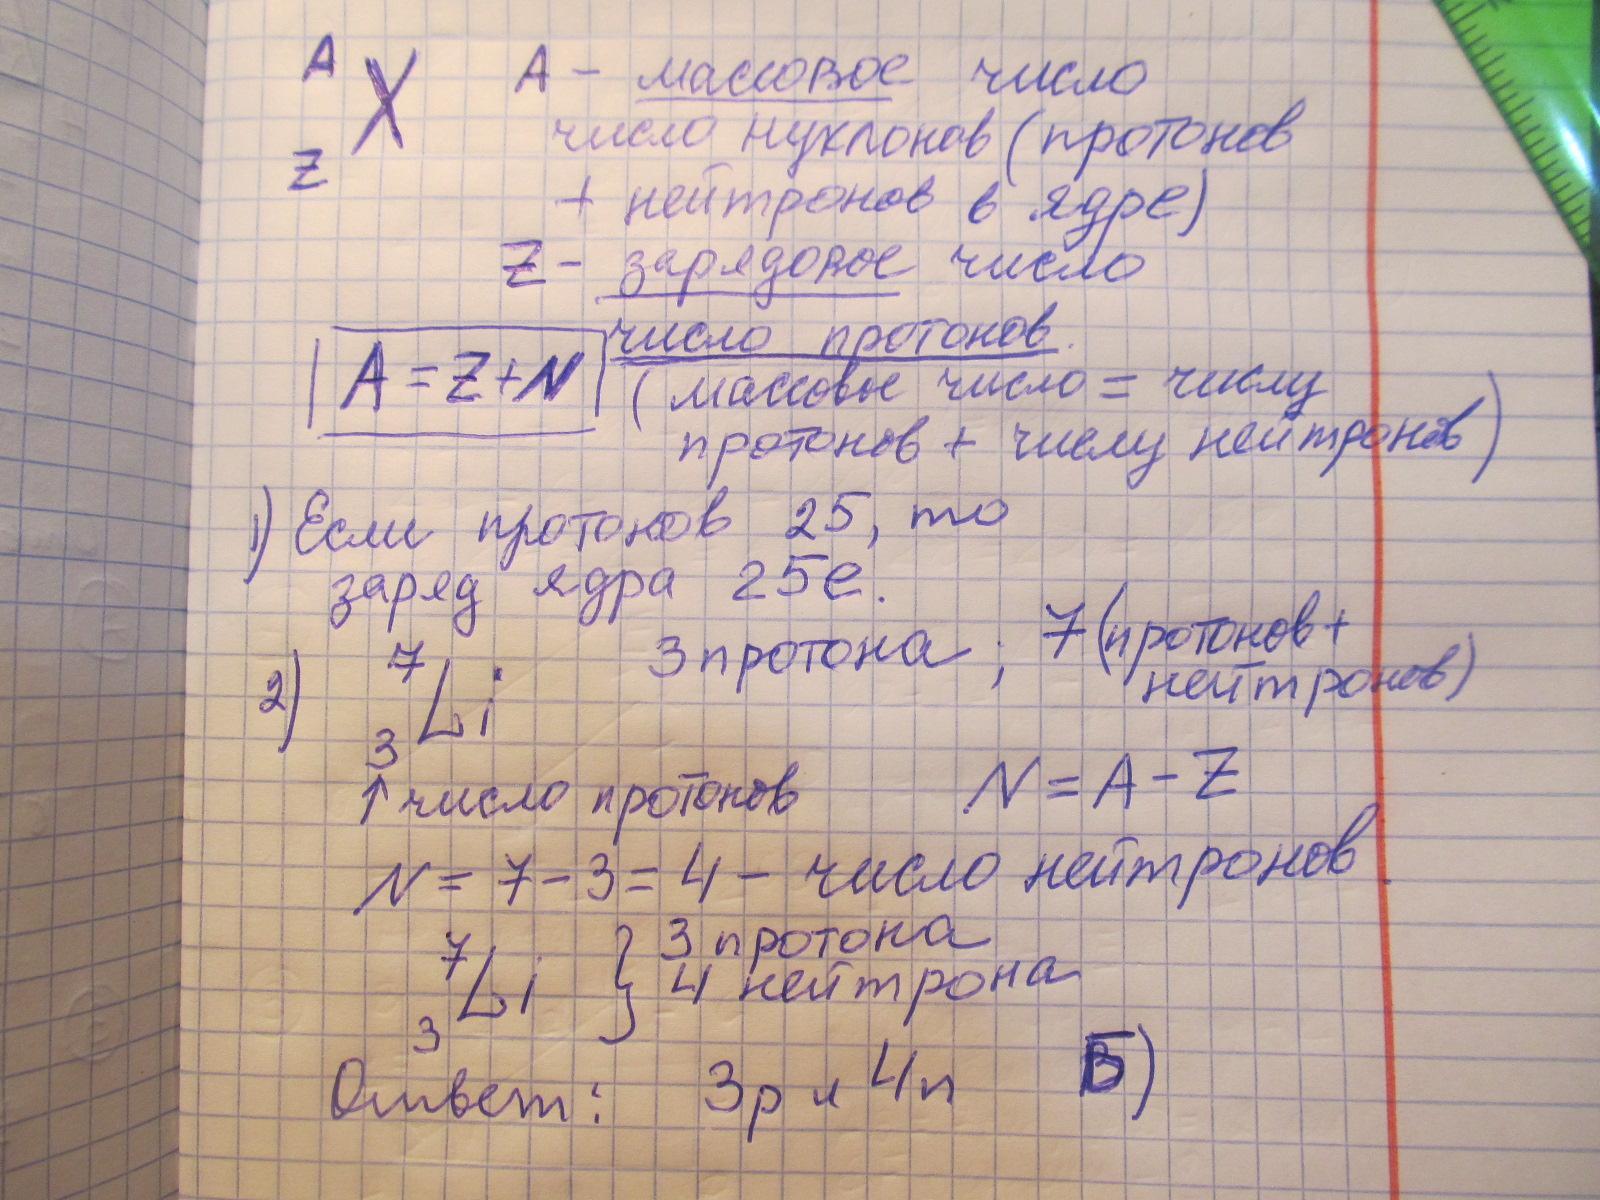 A X A - массовое число
Z число нуклонов (протонов
+ нейтронов в ядре)
Z - зарядовое число
число протонов.
A = Z + N (массовое число = числу
протонов + числу нейтронов)
1) Если протонов 25, то
заряд ядра 25e.
2) 7 Li 3 протона; 7 (протонов +
3 нейтронов)
↑ число протонов N = A - Z
N = 7 - 3 = 4 - число нейтронов.
7 Li } 3 протона
3 4 нейтрона
Ответ: 3p и 4n Б)